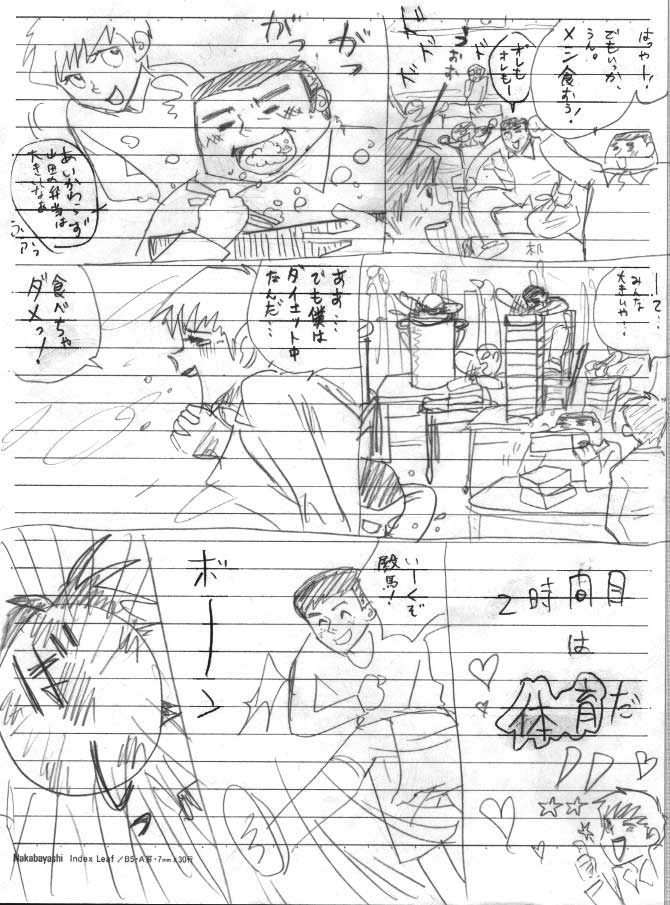 はっやー!!
でもいっか、
うん。
メシ食おう!
オレも
オレもー
ド
ド
ド
ド
ガっ
ガっ
あいかわらず
山田の弁当は
大きいなぁ
ーて…
みんな
大きいや…
ああ…
でも僕は
ダイエット中
なんだ…
食べちゃ
ダメっ!
2時間目
は
体育だ
いーくぞ
殿馬!
ボーン
ばき
っ
机
Nakabayashi Index Leaf / B5・A罫・7mm×30行